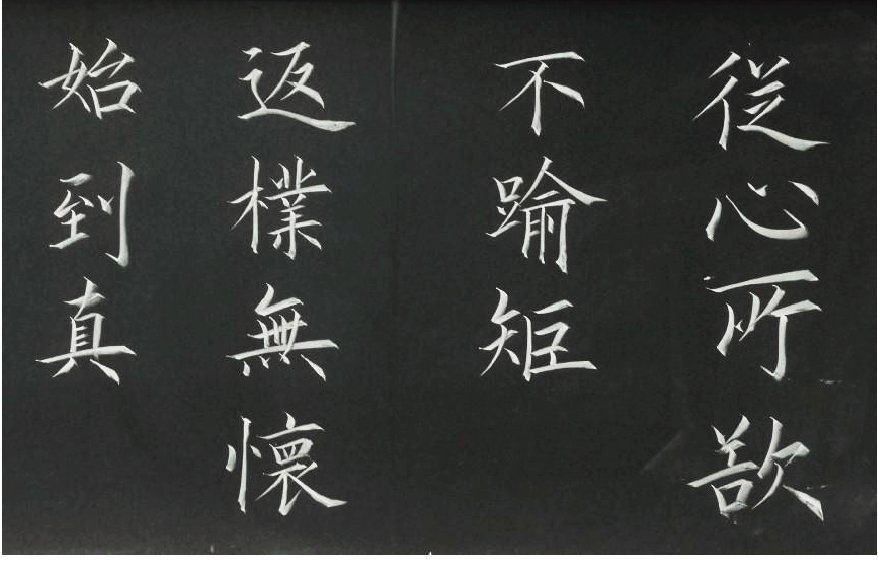 從心所欲
不踰矩
返樸無懷
始到真